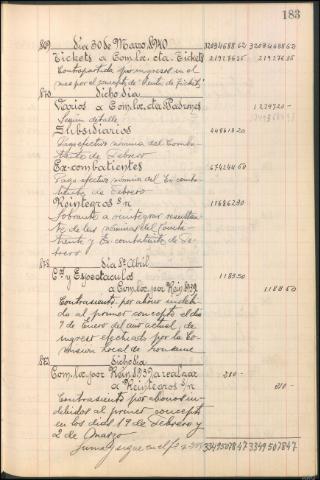 183
869 Dia 30 de Marzo 1940 32094688 62 32094688 62
Tickets a Com. loc. cta. Tickets 219276 25 219276 25
Contrapartida por ingresos en el
mes por el concepto de "Venta de Tickets"
870 dicho dia
Varios a Com. loc. cta Padrones
Según detalle
Subsidiarios 448618 20
Pago efectivo nómina del Comba-
tiente de Febrero
Ex-combatientes
Pago efectivo nomina del Ex comba-
tiente de Febrero
Reintegros s/n
Sobrante a reintegrar resultan-
te de las nóminas del Comba-
tiente y Ex-combatiente de Fe-
brero
Dia 1º Abril
Cª y Espectaculos 1188 50
a Com. loc. por Rein. 1939 1188 50
Contrasiento por abono indebi-
do al primer concepto el dia
9 de Enero del año actual, de
ingreso efectuado por la Co-
mision Local de
dicho dia
Com. loc. por Rein 1939 a realizar
a Reintegros s/n
Contrasiento por abonos in-
debidos al primer concepto
en los dias 19 de Febrero y
2 de Marzo
Suma y sigue en el fº 33495078 47 33495078 47